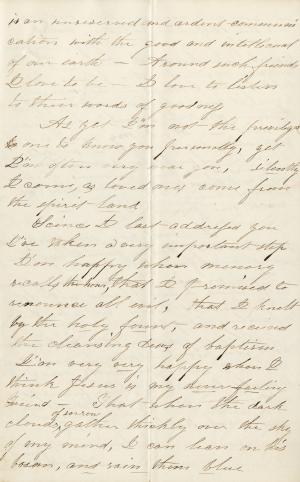 is an unreserved and ardent communi
cation with the good and intellectual
of our earth — Around such friends
I love to be — I love to listen
to their words of goodness
As yet I'm not the privileged
one to know you personally, yet
I'm often very near you, silently
I come, as loved ones come from
the spirit land
Science I last addressed you
I've taken a very important step
I'm happy when memory
recalls the hour, that I promised to
renounce all evil, that I knelt
by the holy fount, and received
the cleansing dews of baptism
I'm very very happy when I
think Jesus is my never failing
friend — That when the dark
clouds of sorrow gather thickly over the sky
of my mind, I can lean on his
bosom, and them blue